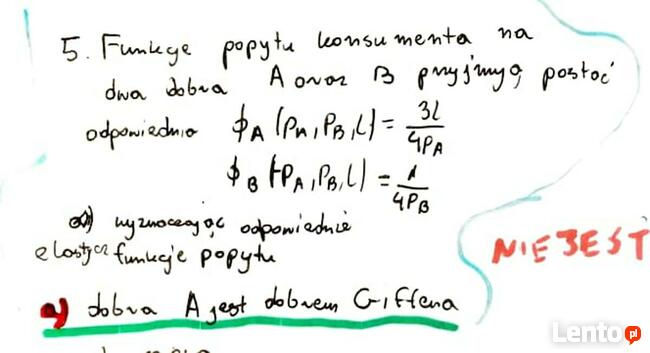 5. Funkcje popytu konsumenta na
dwa dobra A oraz B przyjmują postać
odpowiednio ϕA (PA, PB, L) = 3L / 4PA
ϕB (PA, PB, L) = 1 / 4PB
a) wyznaczając odpowiednie
elastycz funkcje popytu
NIE JEST
a) dobra A jest dobrem Giffena
Lento.pl